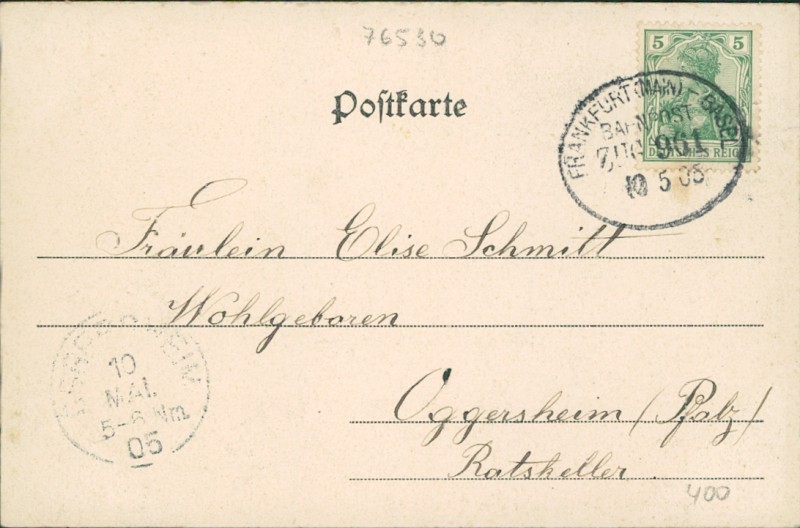 76530
5 5
Postkarte
DEUTSCHES REICH
FRANKFURT (MAIN) - BASEL
BAHNPOST
ZUG 961
10 5 05
Fräulein Elise Schmitt
Wohlgeboren
Oggersheim (Pfalz)
Ratskeller
10
MAI.
5-6 Nm.
05
400